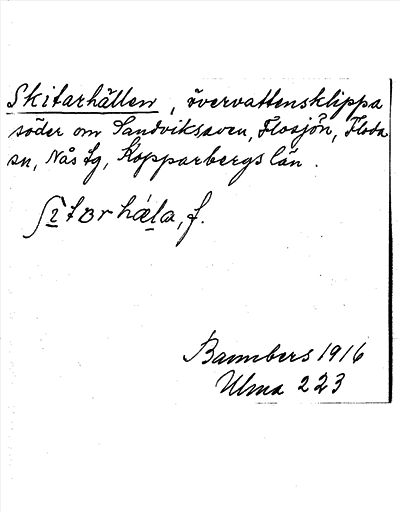 Skitarhällen, övervattensklippa
söder om Sandviksaven, Flosjön, Floda
sn, Nås tg, Kopparbergs län.
ʃìtərhäla, f.
Bannbers 1916
Ulma 223